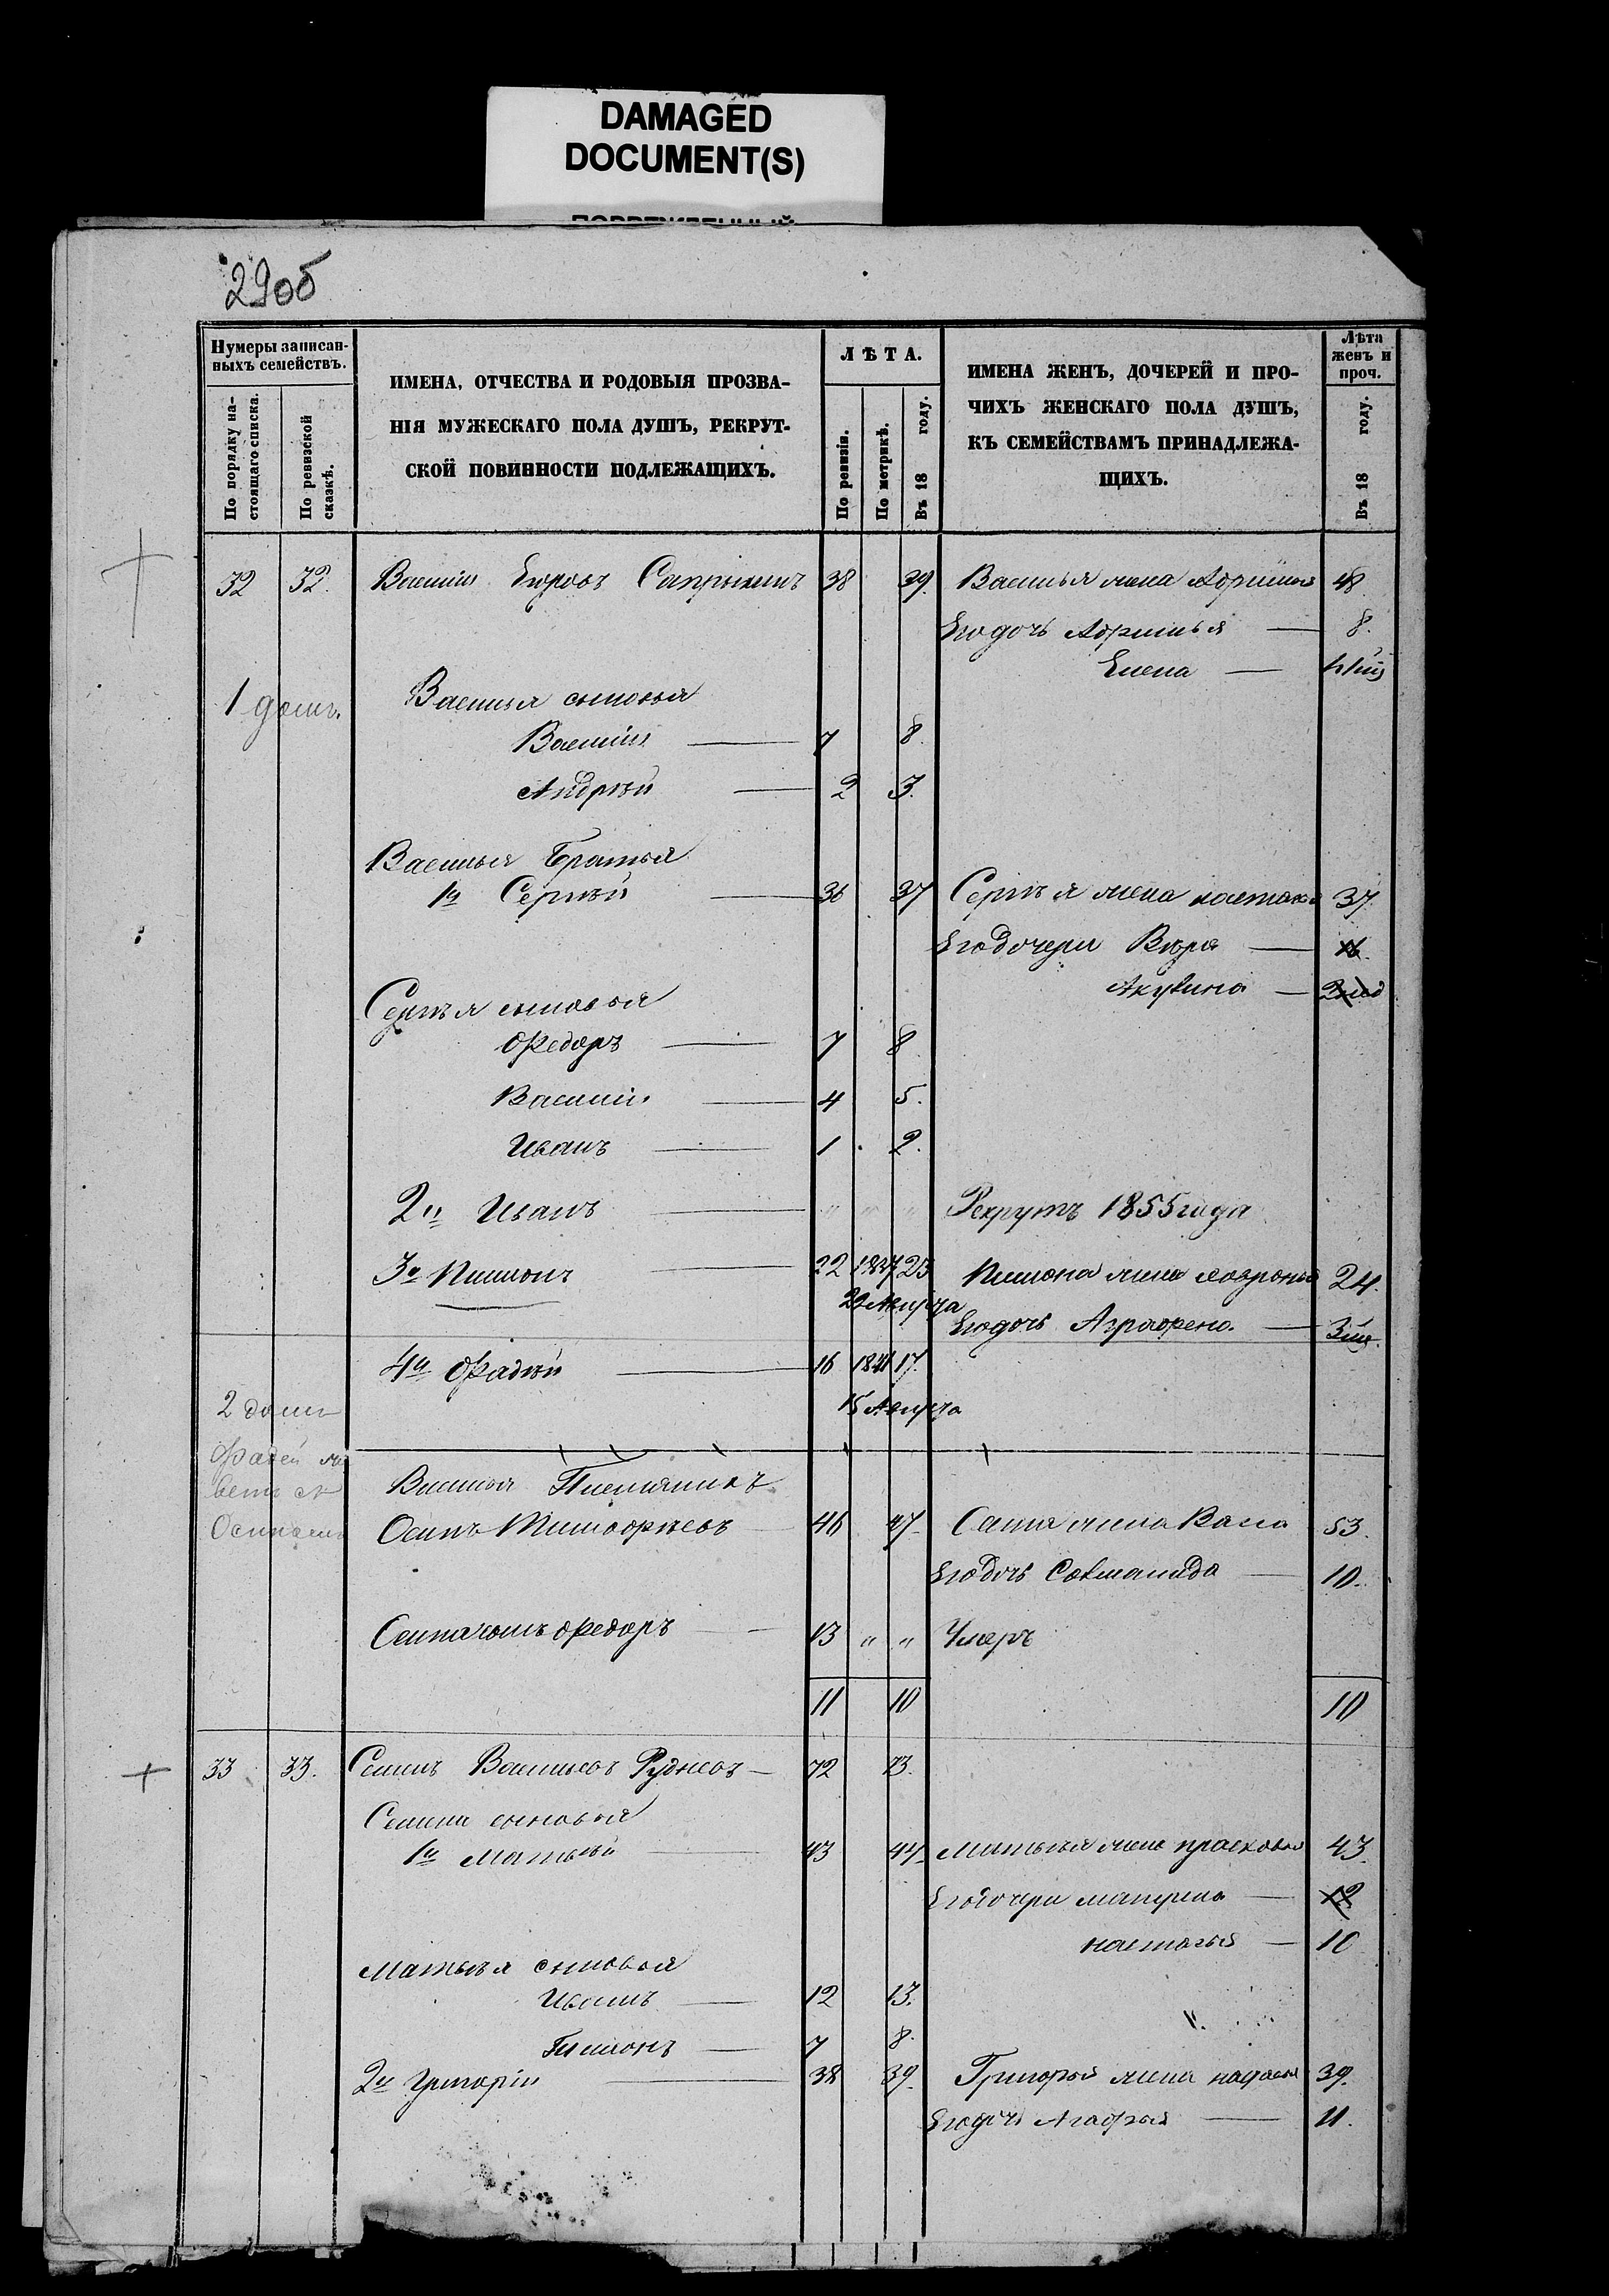 DAMAGED
DOCUMENT(S)
29об
Нумеры записан-
ныхъ семействъ.
По порядку на-
стоящаго списка.
По ревизской
сказкѣ.
ИМЕНА, ОТЧЕСТВА И РОДОВЫЯ ПРОЗВА-
НІЯ МУЖЕСКАГО ПОЛА ДУШЪ, РЕКРУТ-
СКОЙ ПОВИННОСТИ ПОДЛЕЖАЩИХЪ.
ЛѢТА.
По ревизіи.
По метрикѣ.
Въ 18 году.
ИМЕНА ЖЕНЪ, ДОЧЕРЕЙ И ПРО-
ЧИХЪ ЖЕНСКАГО ПОЛА ДУШЪ,
КЪ СЕМЕЙСТВАМЪ ПРИНАДЛЕЖА-
ЩИХЪ.
Лѣта
женъ и
проч.
Въ 18 году.
32 32. Василій Егоровъ Сапрыкинъ 38 39. Василья жена 48.
Его дочь 8.
Елена
1 домъ.
Василья сыновья
Василій 7 8.
Андрѣй 2 3.
Василья Братья
1й Сергѣй 36 37 Сергѣя жена 37.
Его дочери Вѣра
Акулина
Сергѣя сыновья
Федоръ 7 8
Василій 4 5.
Иванъ 1 2.
2й Иванъ " " " Рекрутъ 1855 года
3й Пимонъ 22 1837 23 Пимона жена 24.
22 Августа
Его дочь Аграфена.
4й Фадѣй 16 1841 17.
15 Августа
2 домъ
Фадей
Осипомъ
Василья Племянникъ
Осипъ Тимофѣевъ 46 47. жена Васа 53.
Его дочь 10.
сынъ Федоръ 13 " " Умеръ
11 10 10
33 33. Семенъ Васильевъ Рудневъ 72 73.
Семена сыновья
1й Матвѣй 43 44. Матвѣя жена Прасковья 43.
Его дочери 12
Настасья 10
Матвѣя сыновья
Иванъ 12 13.
7 8.
2й Григорій 38 39. Григорья жена 39.
Его дочь Агафья 11.